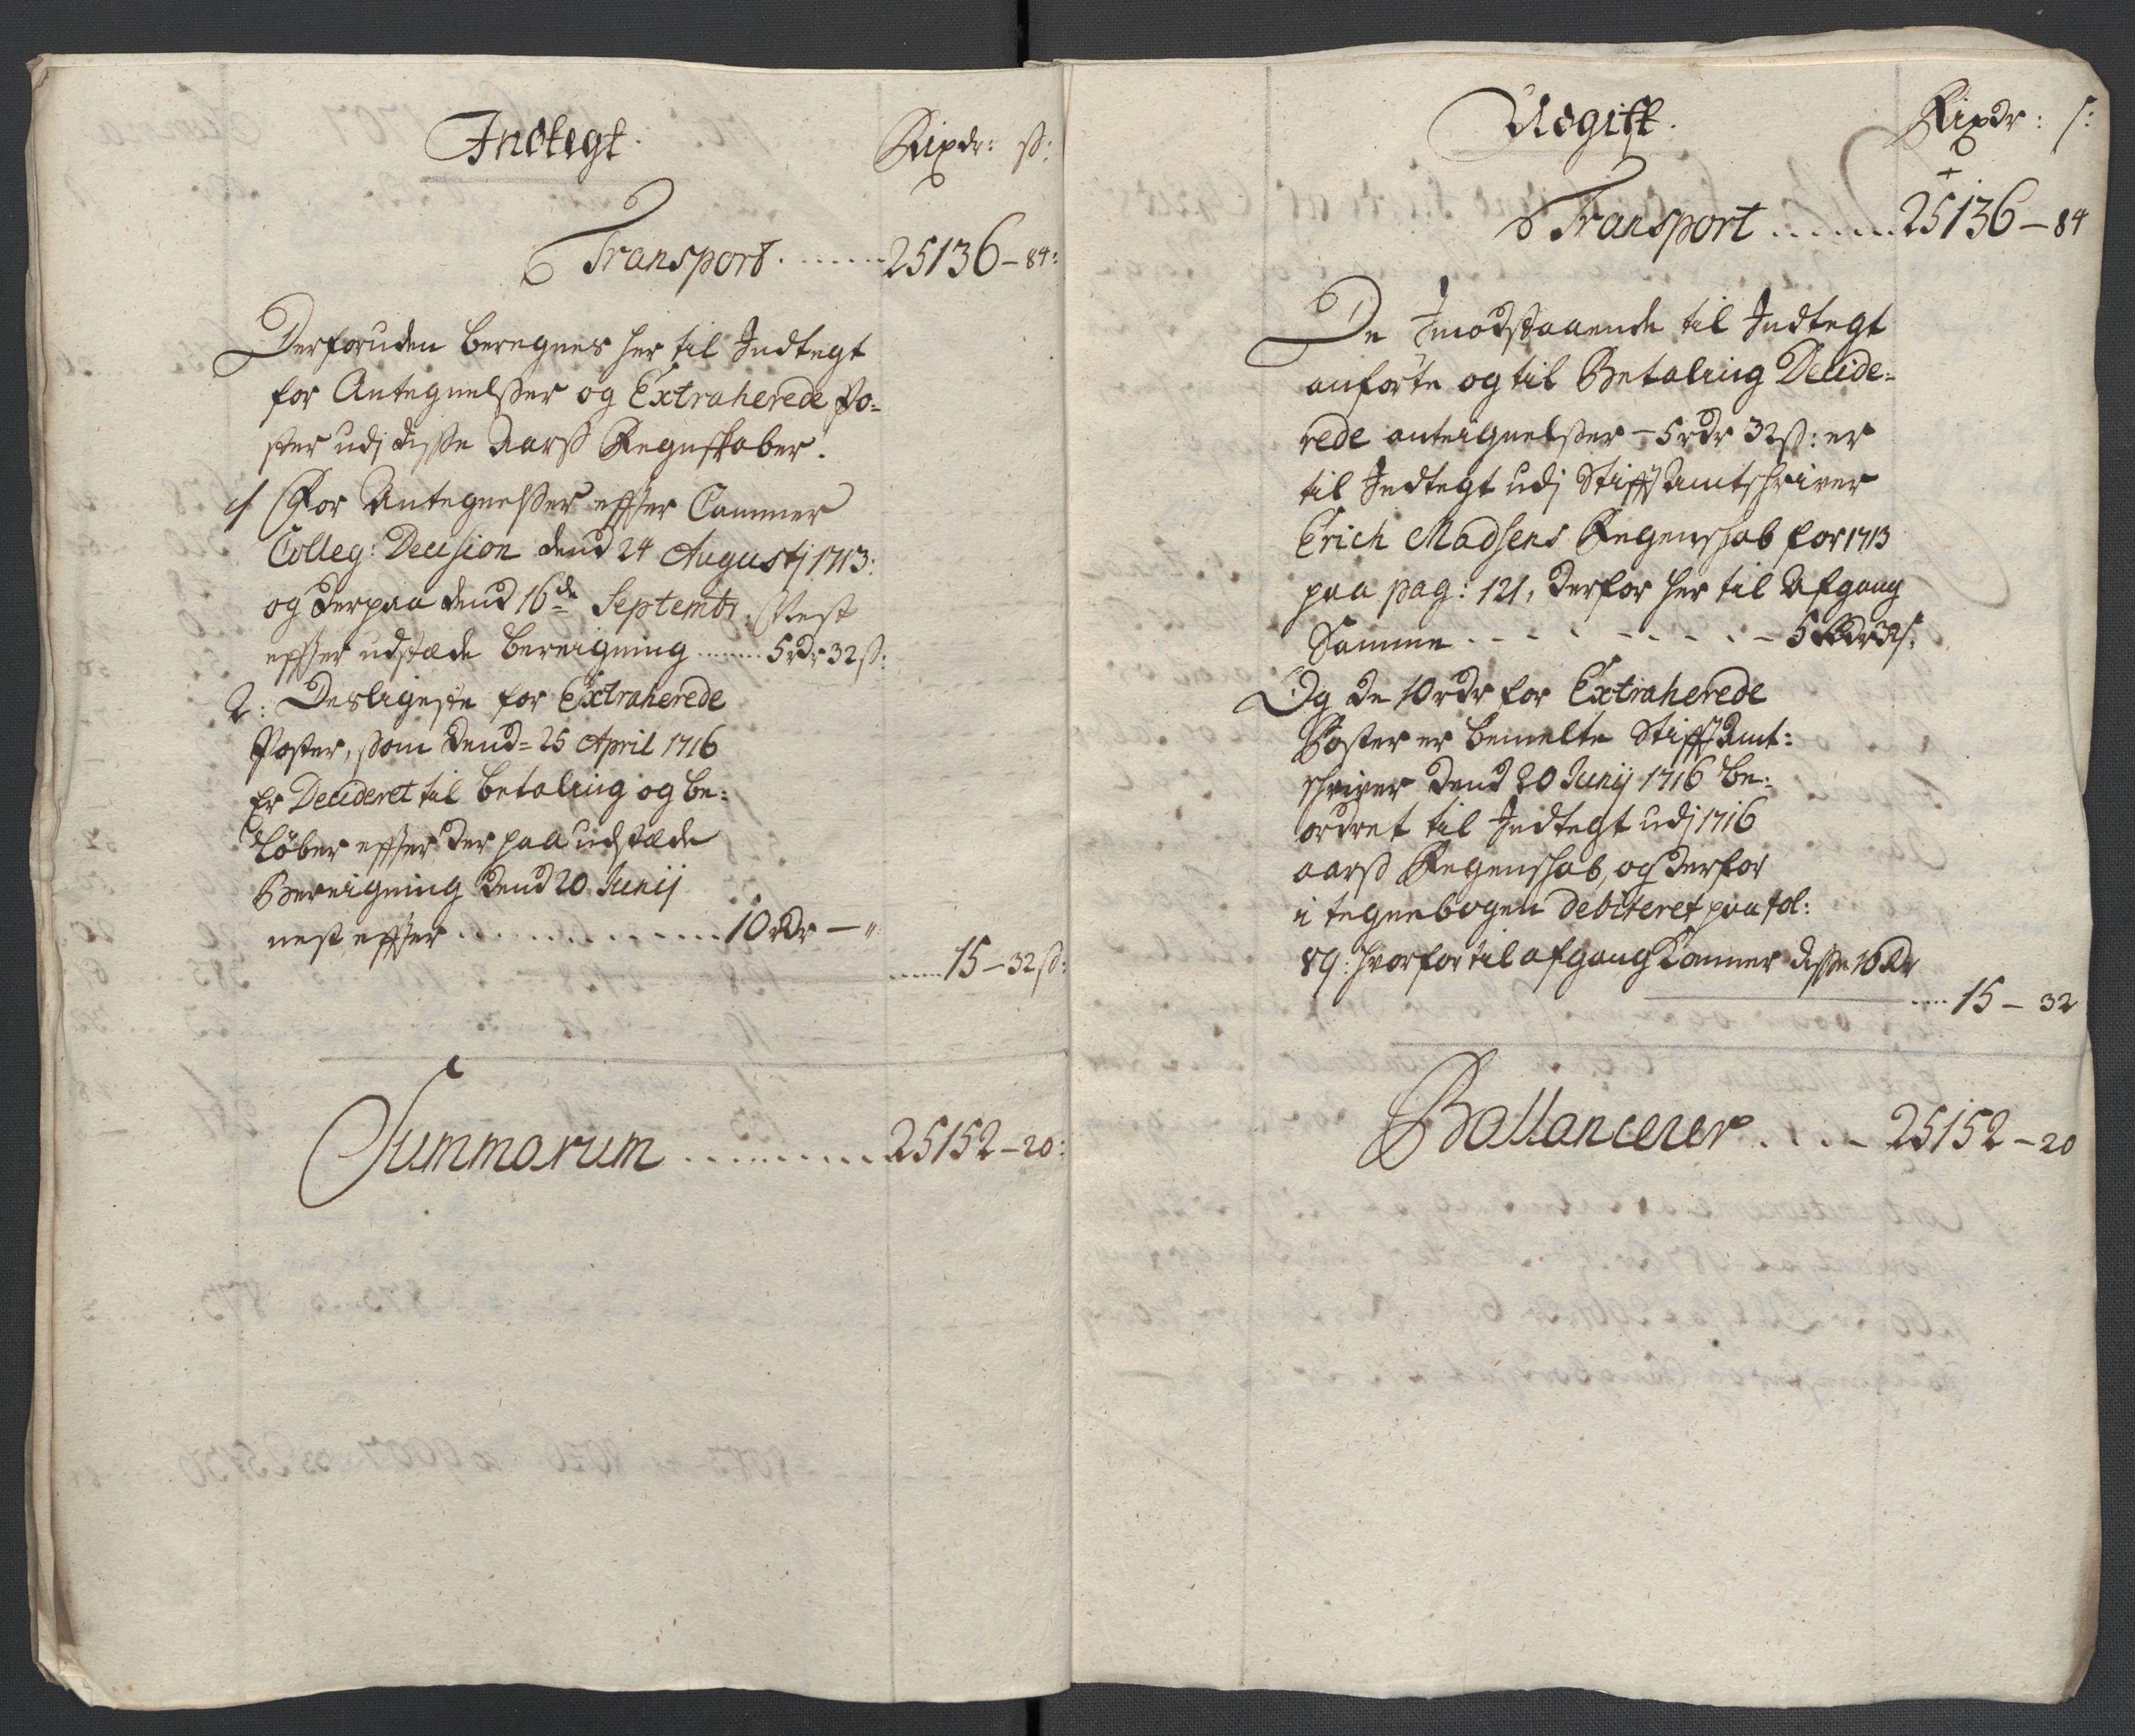 Indtegt.
Rixdr: ß:
Transport ....... 25136 – 84:
Derforuden beregnes her til Indtegt
for Antegnelßer og Extraherede Po=
ster udj disse Aarß Regnskaber.
1 For Antegnelßer effter Cammer
Colleg: Decision dend 24 Augustj 1713:
og derpaa dend 16de Septembr. Nest
effter udstæde bereigning ....... 5 rdr 32 ß:
2: Desligeste for Extraherede
Poster, som dend= 25 April 1716
Er Decideret til betaling og be=
løber effter der paa udstæde
Bereigning dend 20 Junij
nest effter .............. 10 rdr – "
...... 15 – 32 ß:
Summarum ......... 25152 – 20:
Udgifft.
Rixdr: ß:
Transport ...... 25136 – 84
De Imodstaaende til Indtegt
anførte og til Betaling Decide=
rede anteignelßer – 5 rdr 32 ß: er
til Indtegt udj Stifftamtschriver
Erich Madsens Regenschab for 1713
paa pag: 121, derfor her til Afgang
Samme . . . . . . . . – 5 Rdr 32 ß:
Og de 10 rdr for Extraherede
Poster er bemelte Stifftamt=
schriver dend 20 Junij 1716 be=
ordret til Indtegt udj 1716
aarß Regenschab, og derfor
i tegnebogen debiteret paa fol:
89: hvorfor til afgang kommer disse 10 Rdr
.... 15 – 32
Ballancerer . . . . 25152 – 20